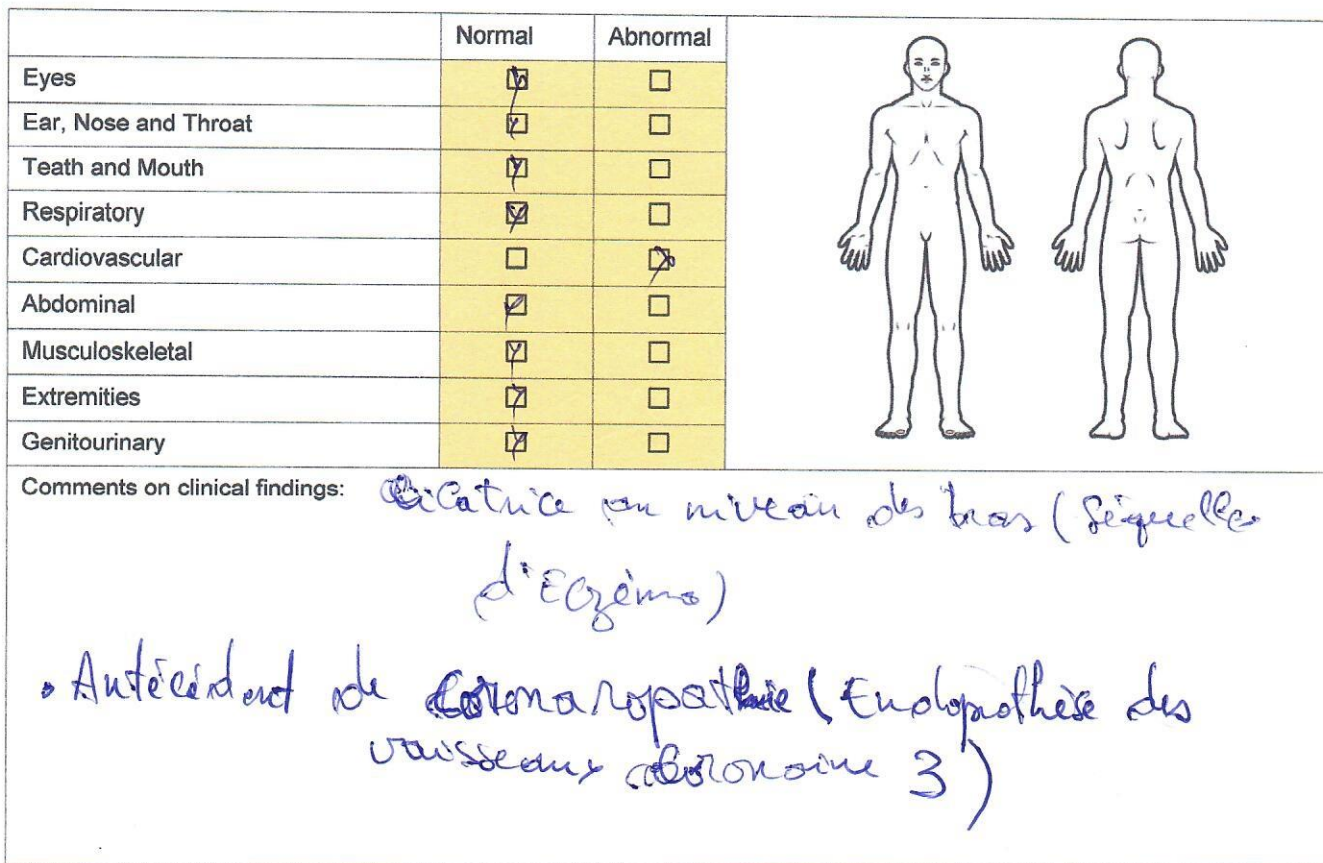 Normal Abnormal
Eyes
Ear, Nose and Throat
Teath and Mouth
Respiratory
Cardiovascular
Abdominal
Musculoskeletal
Extremities
Genitourinary
Comments on clinical findings: Cicatrice au niveau des bras (Séquelles
d'Eczéma)
• Antécédent de coronaropathie (Endoprothèse des
vaisseaux coronaire 3)